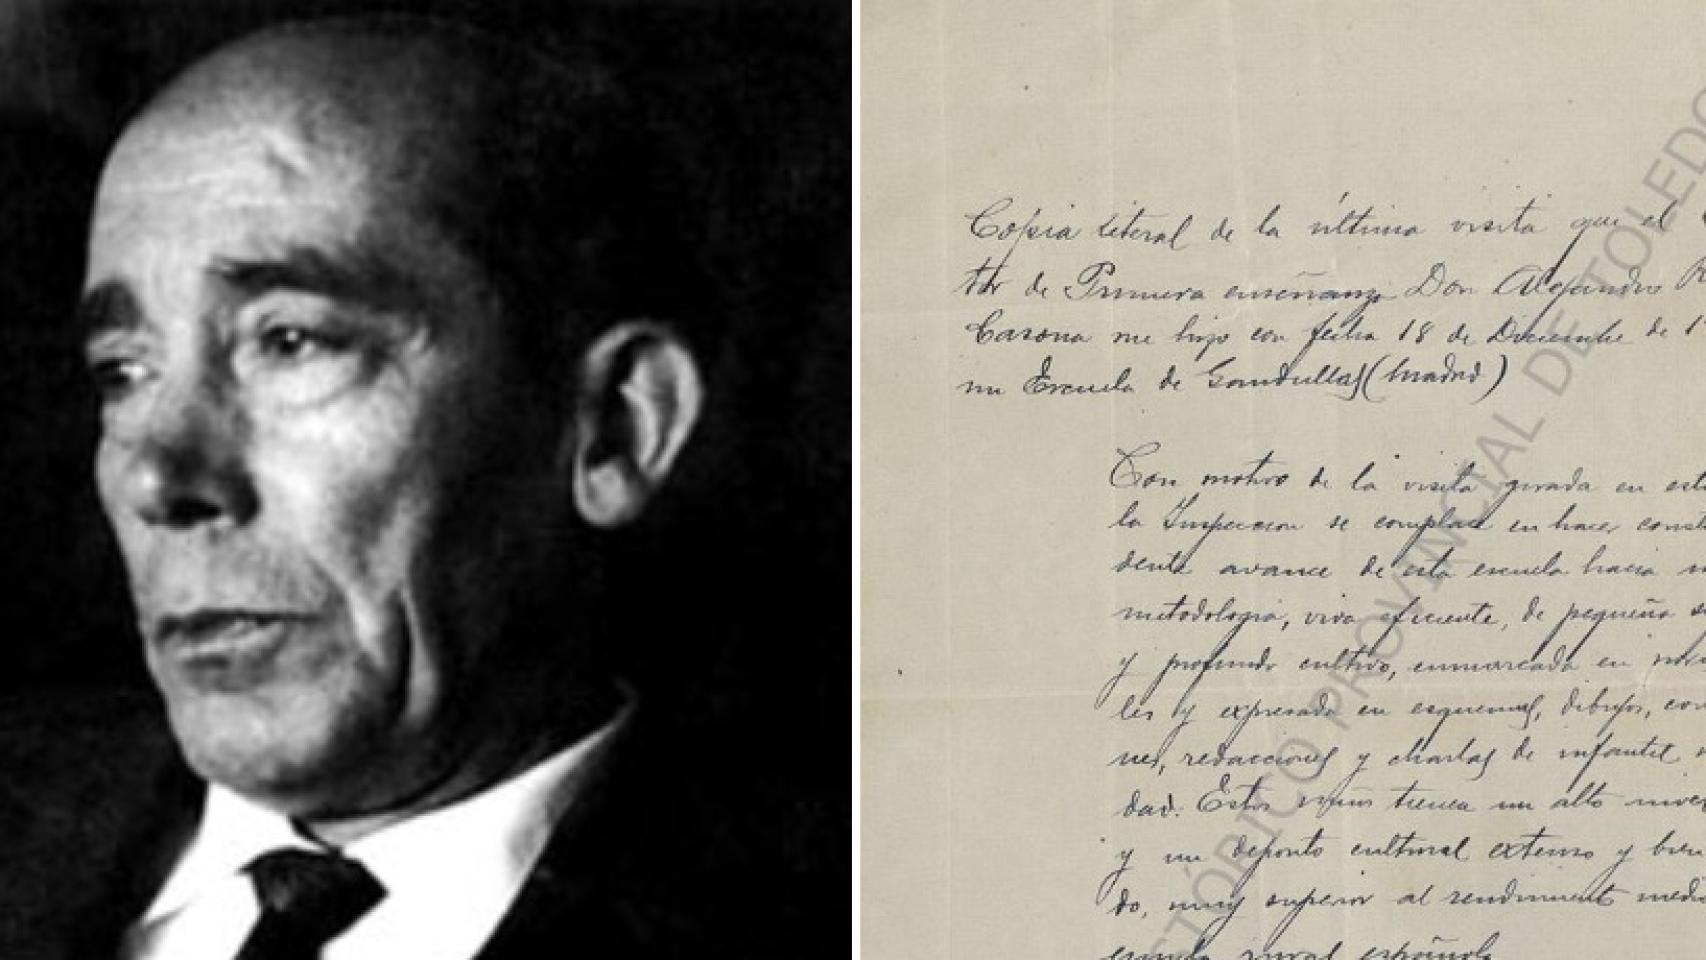 Copia literal de la última visita que el
tor de Primera enseñanza Don Alejandro R
Casona me hizo con fecha 18 de Diciembre de 1
mi Escuela de Gandullas (Madrid)
Con motivo de la visita girada en est
la Inspeccion se complace en hacer const
dente avance de esta escuela hacia
metodologia, viva eficiente, de pequeña
y profundo cultivo, enmarcada en
les y expresada en esquemas, dibujos, con
nes, redacciones y charlas de infantil
dad. Estos niños tienen un alto nive
y un deposito cultural extenso y bien
do, muy superior al rendimiento medi
escuela rural española
HISTÓRICO PROVINCIAL DE TOLEDO